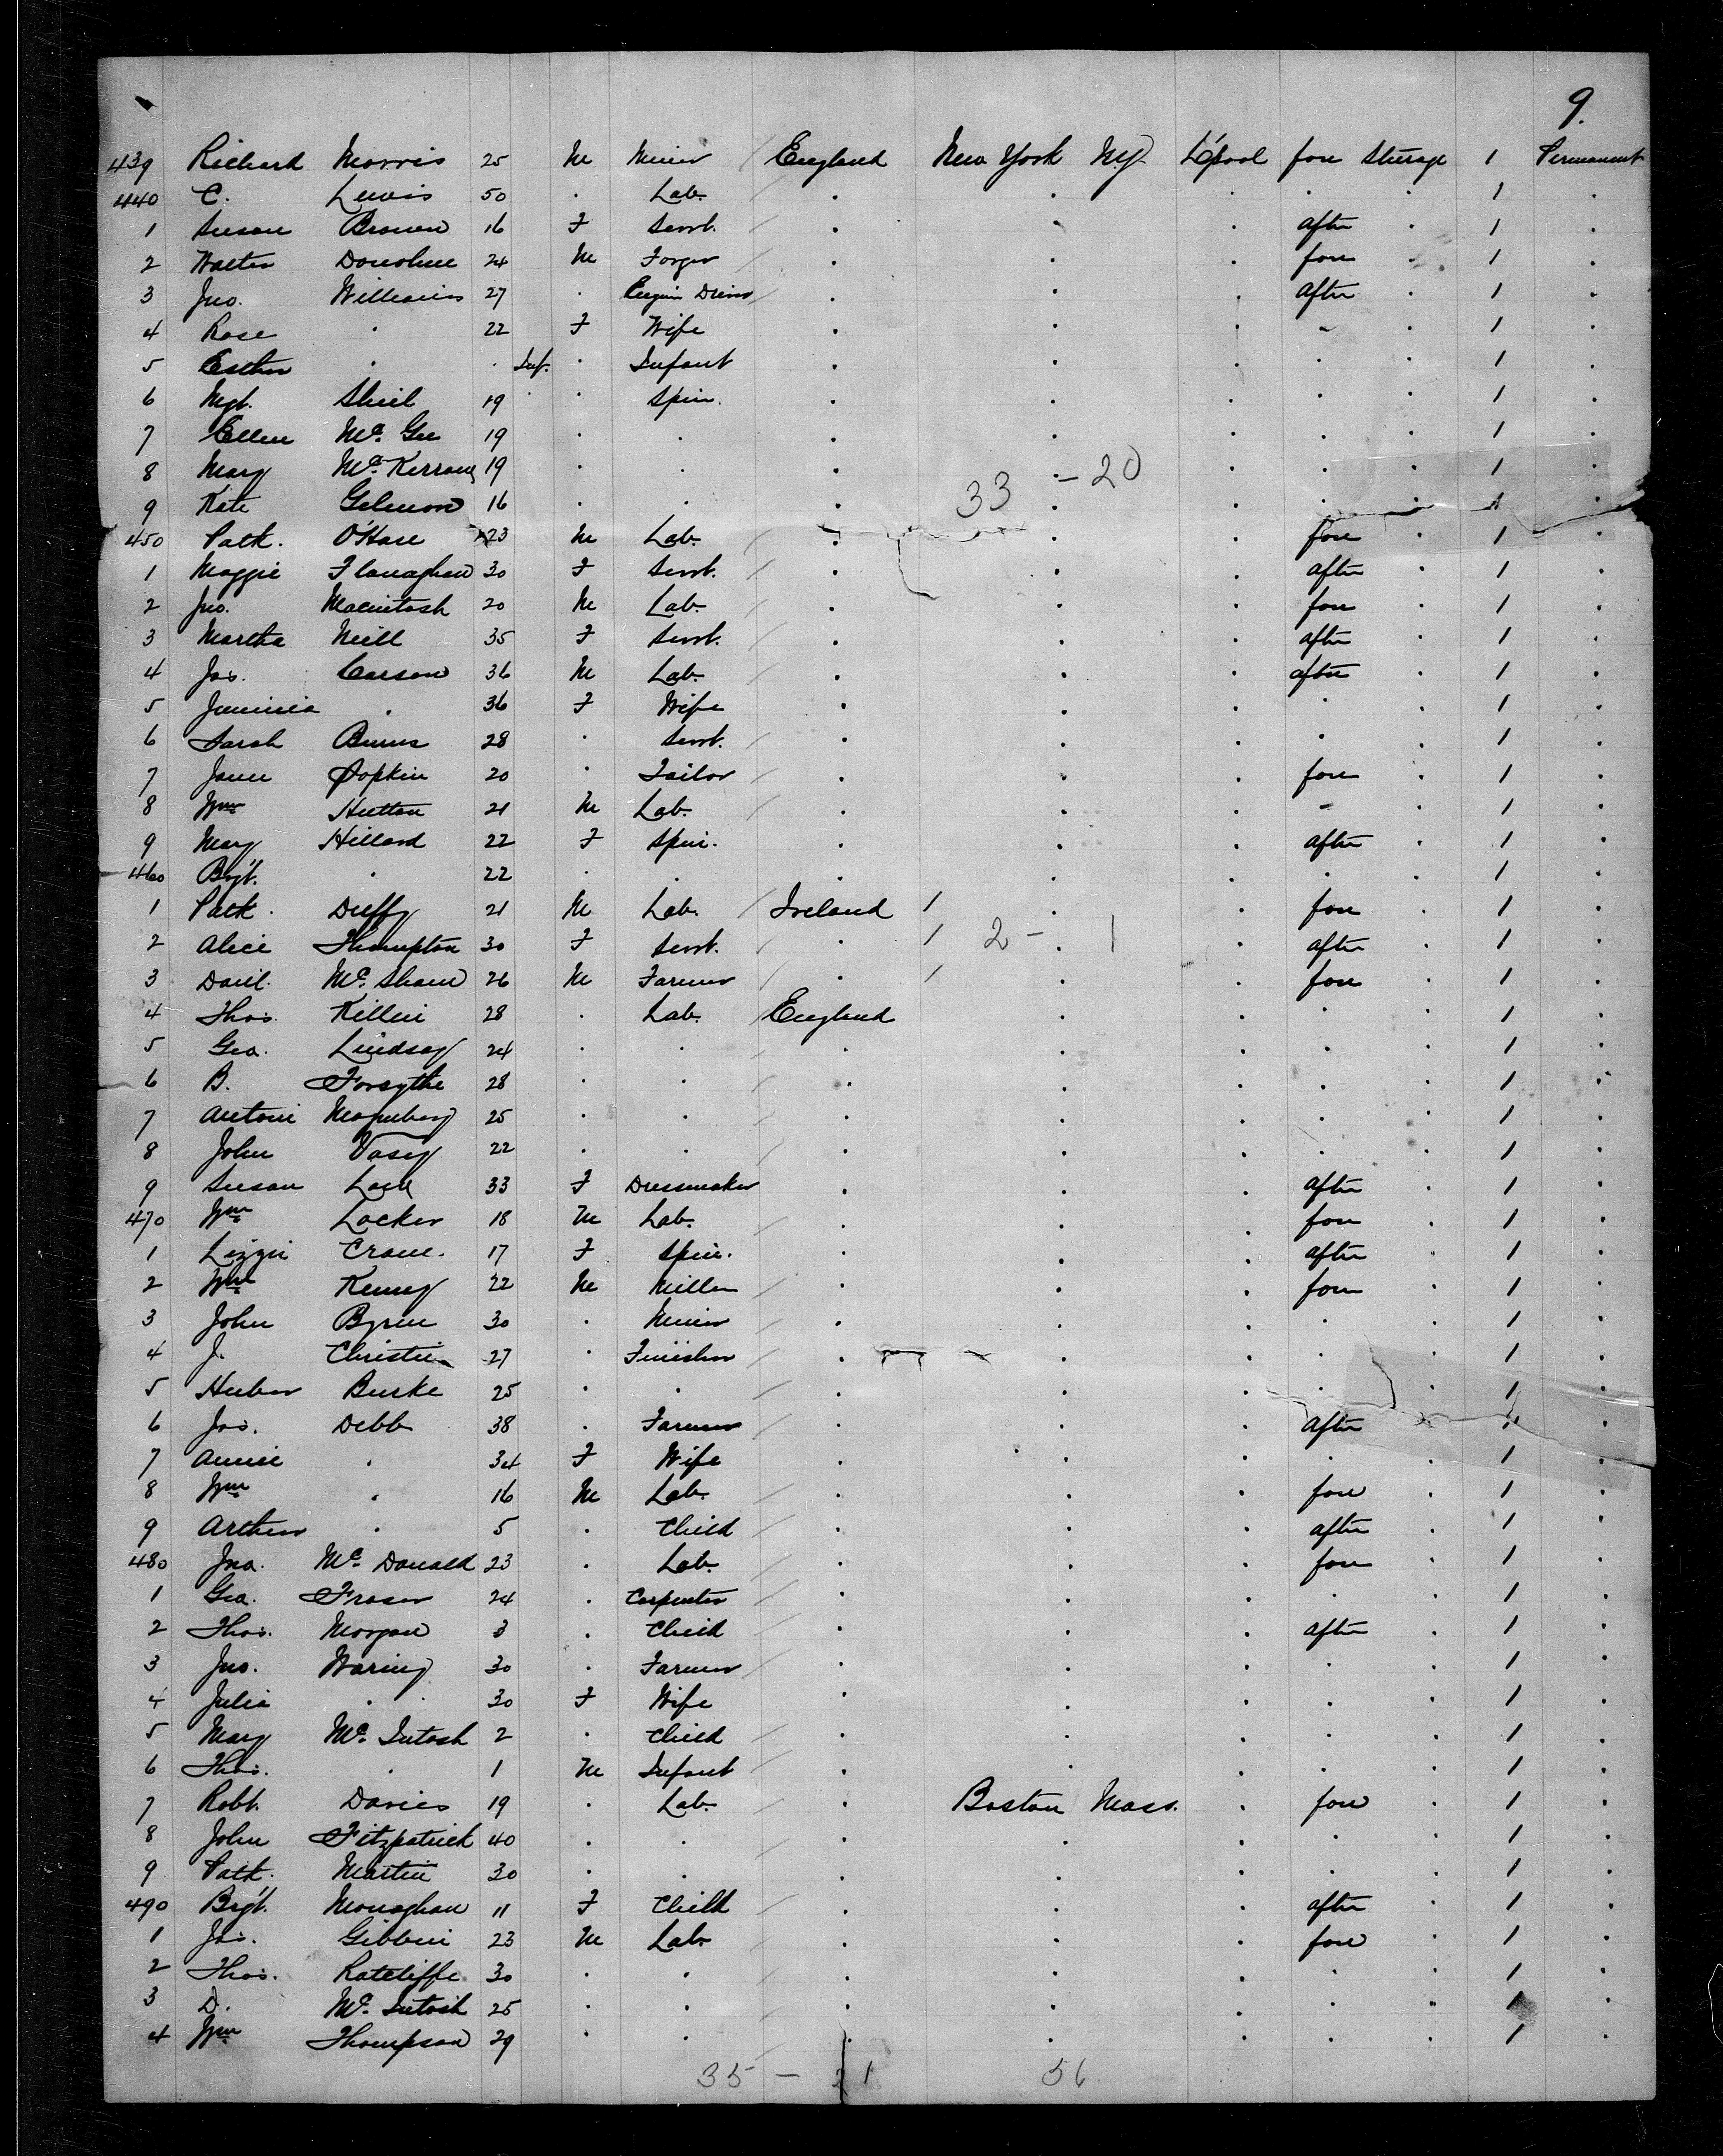 9.
439 Richard Morris 25 M Miner / England New York N.Y. L'pool fore Sterage 1 Permanent
440 C. Lewis 50 . Lab. / . . . . . 1 .
1 Susan Brown 16 F Servt. / . . . after . 1 .
2 Walter Donohue 24 M Forger / . . . fore . 1 .
3 Jno. Williams 27 . Engin Driver / . . . after . 1 .
4 Rose . 22 F Wife . . . . . 1 .
5 Esther . . Inf. . Infant . . . . . 1 .
6 Mgt. Shiel 19 . Spin. . . . . . 1 .
7 Ellen Mc. Gee 19 . . . . . . . 1 .
8 Mary 19 . . . . . . . 1 .
33 - 20
9 Kate 16 . . . . . . . 1 .
450 Patk. O'Hare 23 M Lab. . . . fore . 1 .
1 Maggie Flanaghan 30 F Servt. / . . . after . 1 .
2 Jno. Macintosh 20 M Lab. / . . . fore . 1 .
3 Martha Neill 35 F Servt. / . . . after . 1 .
4 Jas. Carson 36 M Lab. / . . . after . 1 .
5 . 36 F Wife . . . . . 1 .
6 Sarah Burns 28 . Servt. / . . . . . 1 .
7 Jane Hopkin 20 . Tailor / . . . fore . 1 .
8 Wm Hutton 21 M Lab. / . . . . . 1 .
9 Mary Hillard 22 F Spin. . . . after . 1 .
460 Bgt. . 22 . . . . . . . 1 .
1 Patk. Duffy 21 M Lab. / Ireland / . . fore . 1 .
2 Alice Thompton 30 F Servt. / . / 2 - 1 . after . 1 .
3 Danl. Mc. Shane 26 M Farmer / . / . fore . 1 .
4 Thos. Killin 28 . Lab. England . . . . 1 .
5 Geo. Lindsay 24 . . . . . . . 1 .
6 B. Forsythe 28 . . / . . . . . 1 .
7 25 . . / . . . . . 1 .
8 John Vasey 22 . . / . . . . . 1 .
9 Susan 33 F Dressmaker . . . after . 1 .
470 Wm Locker 18 M Lab. / . . . fore . 1 .
1 Lizzie Crane. 17 F Spin. . . . after . 1 .
2 Wm Kenny 22 M Miller / . . . fore . 1 .
3 John Byrne 30 . Miner / . . . . . 1 .
4 J. Christie 27 . Finisher / . . . . . 1 .
5 Burke 25 . . / . . . . . 1 .
6 Jas. Debb 38 . Farmer / . . . after . 1 .
7 Annie . 34 F Wife . . . . . 1 .
8 Wm . 16 M Lab. / . . . fore . 1 .
9 Arthur . 5 . Child / . . . after . 1 .
480 Jno. Mc. Donald 23 . Lab. / . . . fore . 1 .
1 Geo. Fraser 24 . Carpenter / . . . . . 1 .
2 Thos. Morgan 3 . Child . . . after . 1 .
3 Jno. Waring 30 . Farmer / . . . . . 1 .
4 Julia . 30 F Wife . . . . . 1 .
5 Mary Mc. Intosh 2 . Child . . . . . 1 .
6 Thos. . 1 M Infant . . . . . 1 .
7 Robt. Davies 19 . Lab. / . Boston Mass. . fore . 1 .
8 John Fitzpatrick 40 . . . . . . . 1 .
9 Patk. Martin 30 . . . . . . . 1 .
490 Brgt. Monaghan 11 F Child / . . . after . 1 .
1 Jas. Gibbin 23 M Lab. / . . . fore . 1 .
2 Thos. Ratcliffe 30 . . / . . . . . 1 .
3 D. Mc. Intosh 25 . . / . . . . . 1 .
4 Wm Thompson 29 . . / . . . . . 1 .
35 - 21 56